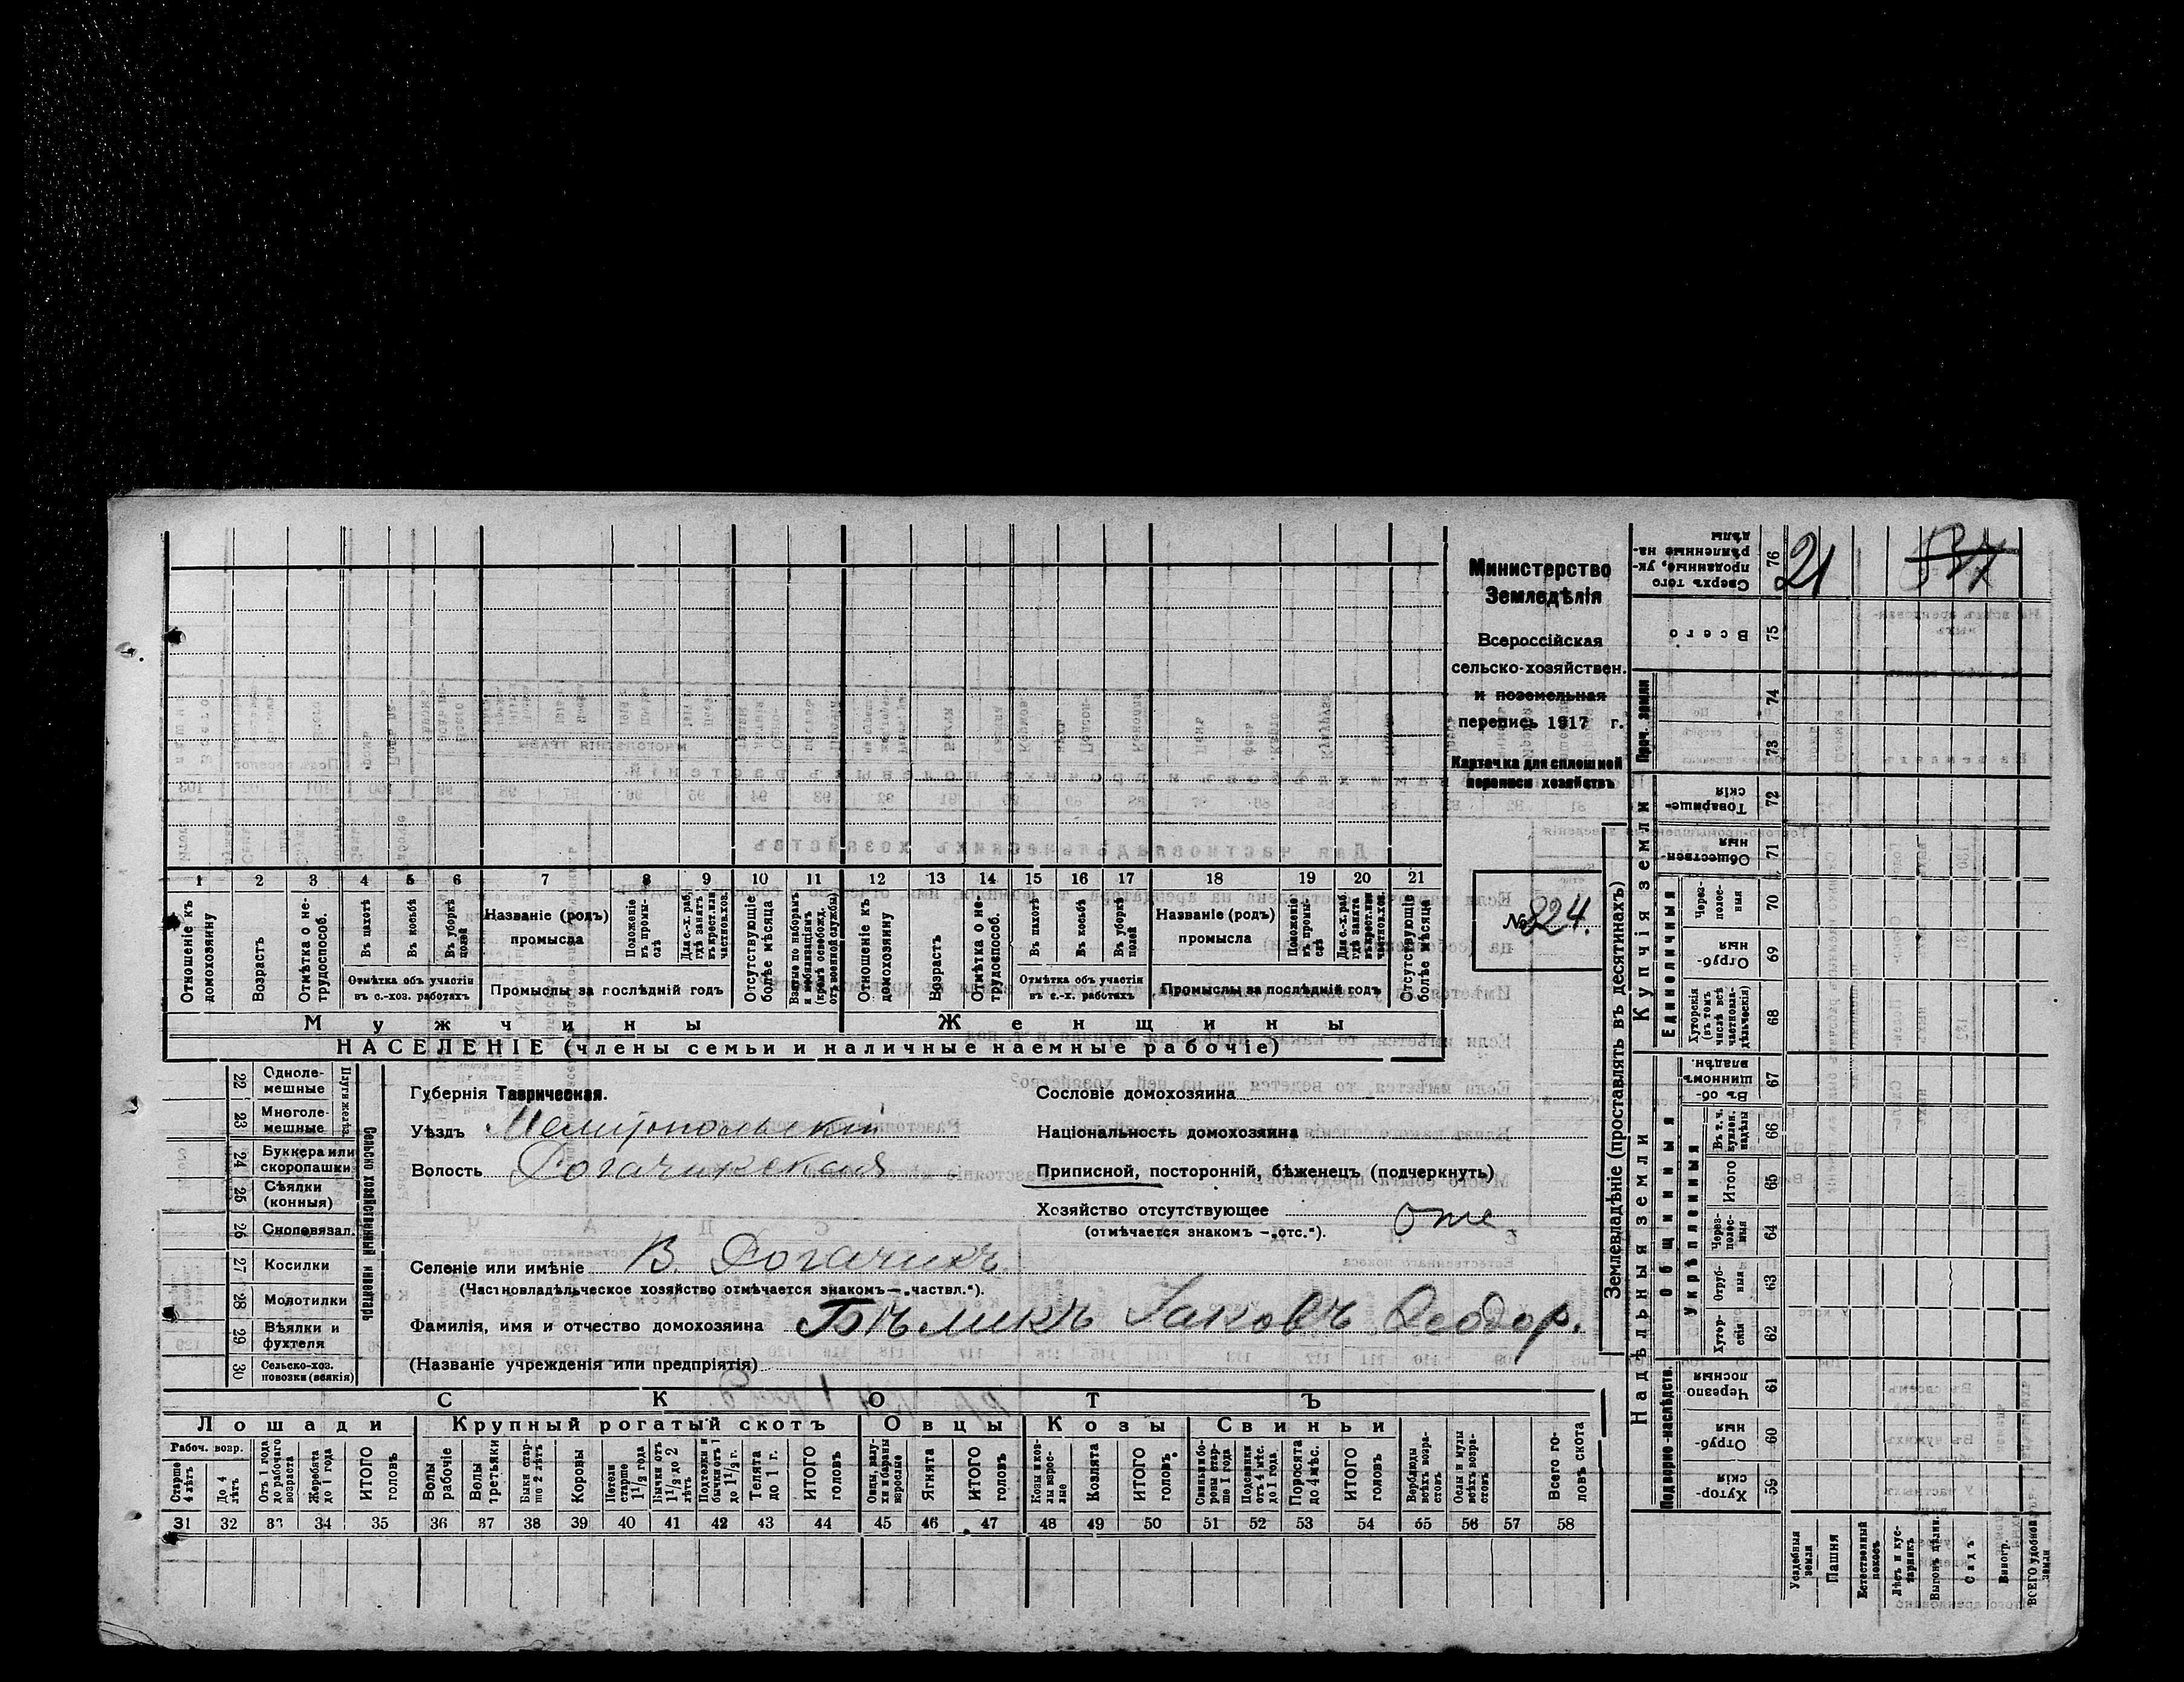 Министерство
Земледѣлія
Всероссійская
сельско-хозяйствен.
и поземельная
перепись 1917 г.
Карточка для сплошной
переписи хозяйствъ
№ 824.
1 2 3 4 5 6 7 8 9 10 11 12 13 14 15 16 17 18 19 20 21
Отношеніе къ домохозяину
Возрастъ
Отмѣтка о не-трудоспособ.
Въ пахотѣ
Въ косьбѣ
Въ уборкѣ полей
Отмѣтка объ участіи въ с.-хоз. работахъ
Названіе (родъ) промысла
Положеніе въ промы-слѣ
Для с.-х. раб. гдѣ занятъ въ крест. или частновл. хоз.
Промыслы за послѣдній годъ
Отсутствующіе болѣе мѣсяца
Взятые по наборамъ и мобилизаціямъ (кромѣ освобожд. отъ военной службы)
Отношеніе къ домохозяину
Возрастъ
Отмѣтка о не-трудоспособ.
Въ пахотѣ
Въ косьбѣ
Въ уборкѣ полей
Отмѣтка объ участіи въ с.-х. работахъ
Названіе (родъ) промысла
Положеніе въ промы-слѣ
Для с.-х. раб. гдѣ занята въ крест. или частновл. хоз.
Промыслы за послѣдній годъ
Отсутствующіе болѣе мѣсяца
Мужчины Женщины
НАСЕЛЕНІЕ (члены семьи и наличные наемные рабочіе)
Сельско хозяйственный инвентарь
Плуги желѣз.
22 Одноле-мешные
23 Многоле-мешные
24 Буккера или скоропашки
25 Сѣялки (конныя)
26 Сноповязал.
27 Косилки
28 Молотилки
29 Вѣялки и фухтеля
30 Сельско-хоз. повозки (всякія)
Губернія Таврическая.
Уѣздъ Мелитопольскій
Волость Рогачикская
Селеніе или имѣніе В. Рогачикъ
(Частновладѣльческое хозяйство отмѣчается знакомъ—„частвл.“).
Фамилія, имя и отчество домохозяина Бѣликъ Іаковъ Феодор.
(Названіе учрежденія или предпріятія)
Сословіе домохозяина
Національность домохозяина
Приписной, посторонній, бѣженецъ (подчеркнуть)
Хозяйство отсутствующее отс.
(отмѣчается знакомъ —„отс.“).
СКОТЪ
Лошади Крупный рогатый скотъ Овцы Козы Свиньи
Рабоч. возр.
Старше 4 лѣтъ
До 4 лѣтъ
Отъ 1 года до рабочаго возраста
Жеребята до 1 года
ИТОГО головъ
Волы рабочіе
Волы третьяки
Быки стар-ше 2 лѣтъ
Коровы
Нетели старше 1 1/2 года
Бычки отъ 1 1/2 до 2 лѣтъ
Подтелки и бычки отъ 1 до 1 1/2 г.
Телята до 1 г.
ИТОГО головъ
Овцы, валу-хи и бараны взрослые
Ягнята
ИТОГО головъ
Козы и коз-лы взрос-лые
Козлята
ИТОГО головъ
Свиньи и бо-ровы стар-ше 1 года
Подсвинки отъ 4 мѣс. до 1 года
Поросята до 4 мѣс.
ИТОГО головъ
Верблюды всѣхъ возра-стовъ
Ослы и мулы всѣхъ возра-стовъ
Всего го-ловъ скота
31 32 33 34 35 36 37 38 39 40 41 42 43 44 45 46 47 48 49 50 51 52 53 54 55 56 57 58
Землевладѣніе (проставлять въ десятинахъ)
Надѣльныя земли
Купчія земли
Проч. земли
Подворно-наслѣдств.
Общинныя
Укрѣпленныя
Единоличныя
59 Хутор-скія
60 Отруб-ныя
61 Черезпо-лосныя
62 Хутор-скія
63 Отруб-ныя
64 Через-полос-ныя
65 Итого
66 Въ т. ч. куплен. надѣлы
67 Въ об-щинномъ владѣн.
68 Хуторскія (въ томъ числѣ всѣ частновла-дѣльческія)
69 Отруб-ныя
70 Через-полос-ныя
71 Обществен-ныя
72 Товарище-скія
73
74
75 Всего
76 Сверхъ того проданные, ук-рѣпленные на-дѣлы
21
Усадебныя земли
Пашня
Естественный покосъ
Лѣсъ и кус-тарникъ
Выгонъ цѣлин.
Садъ
Виногр.
ВСЕГО удобной земли